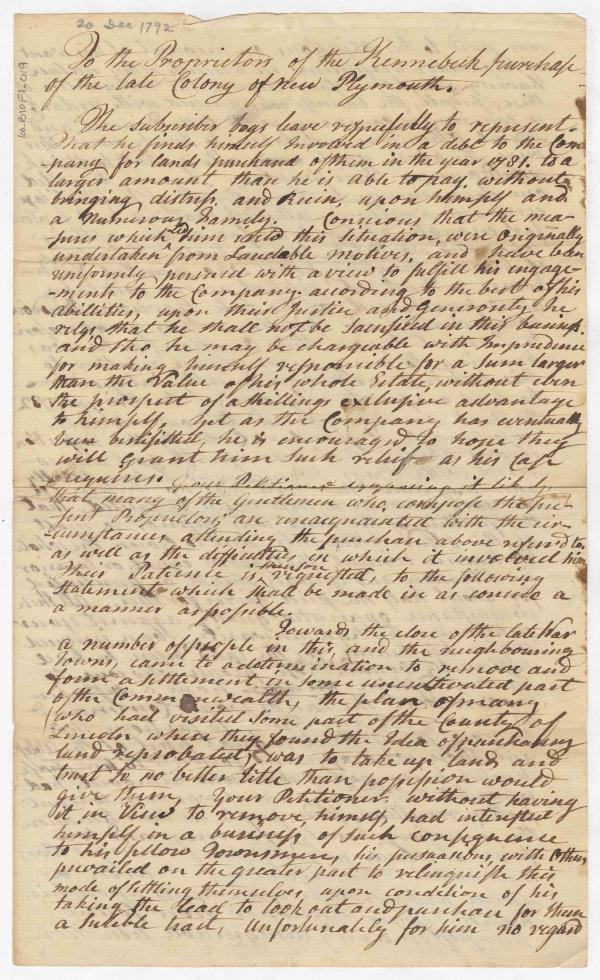 20 Dec 1792
60-B10F1-019
To the Proprietors of the Kennebeck purchase
of the late Colony of new Plymouth.
The Subscriber begs leave respectfully to represent.
that he finds himself Involved in a debt to the Com-
-pany for lands purchased of them in the year 1781. to a
larger amount than he is able to pay, without
bringing distress and Ruin, upon himself and
a numerous Family. Conscious that the mea-
sures which led him into this Situation, were Originally
undertaken from Laudable motives, and have been
uniformly persued with a view to fulfill his engage-
-ments to the Company according to the best of his
abillities, upon their Justice and Generosity he
relys that he shall not be Sacrificed in this business
and tho he may be chargeable with Imprudence
for making himself responsible for a Sum larger
than the Value of his whole Estate, without even
the prospect of a shillings exclusive advantage
to himself, yet as the Company has eventually
been benifitted, he is encouraged to hope they
will grant him Such relief as his Case
requires. Your Petitioner supposing it likely
that many of the Gentlemen who compose the pre-
sent Proprietors, are unacquainted with the cir-
-cumstances attending the purchase above refered to,
as well as the difficulties in which it involved him
their Patience is therefore requested, to the following
Statement which shall be made in as concise a
a manner as possible.
Towards the close of the late War
a number of people in this, and the neighbouring
Towns, came to a determination to remove and
form a settlement in Some uncultivated part
of the Common wealth, the plan of many
(who had visited Some part of the County of
Lincoln where they found the Idea of purchasing
land reprobated, was to take up land and
trust to no better title than possession would
give them, Your Petitioner without having
it in View to remove himself, had interested
himself in a business of Such consequence
to his fellow Townsmen, his persuasions, with others
prevailed on the greater part to relinquish this
mode of settling themselves upon condition of his
taking the lead to look out and purchase for them
a Suitable tract, Unfortunately for him no regard